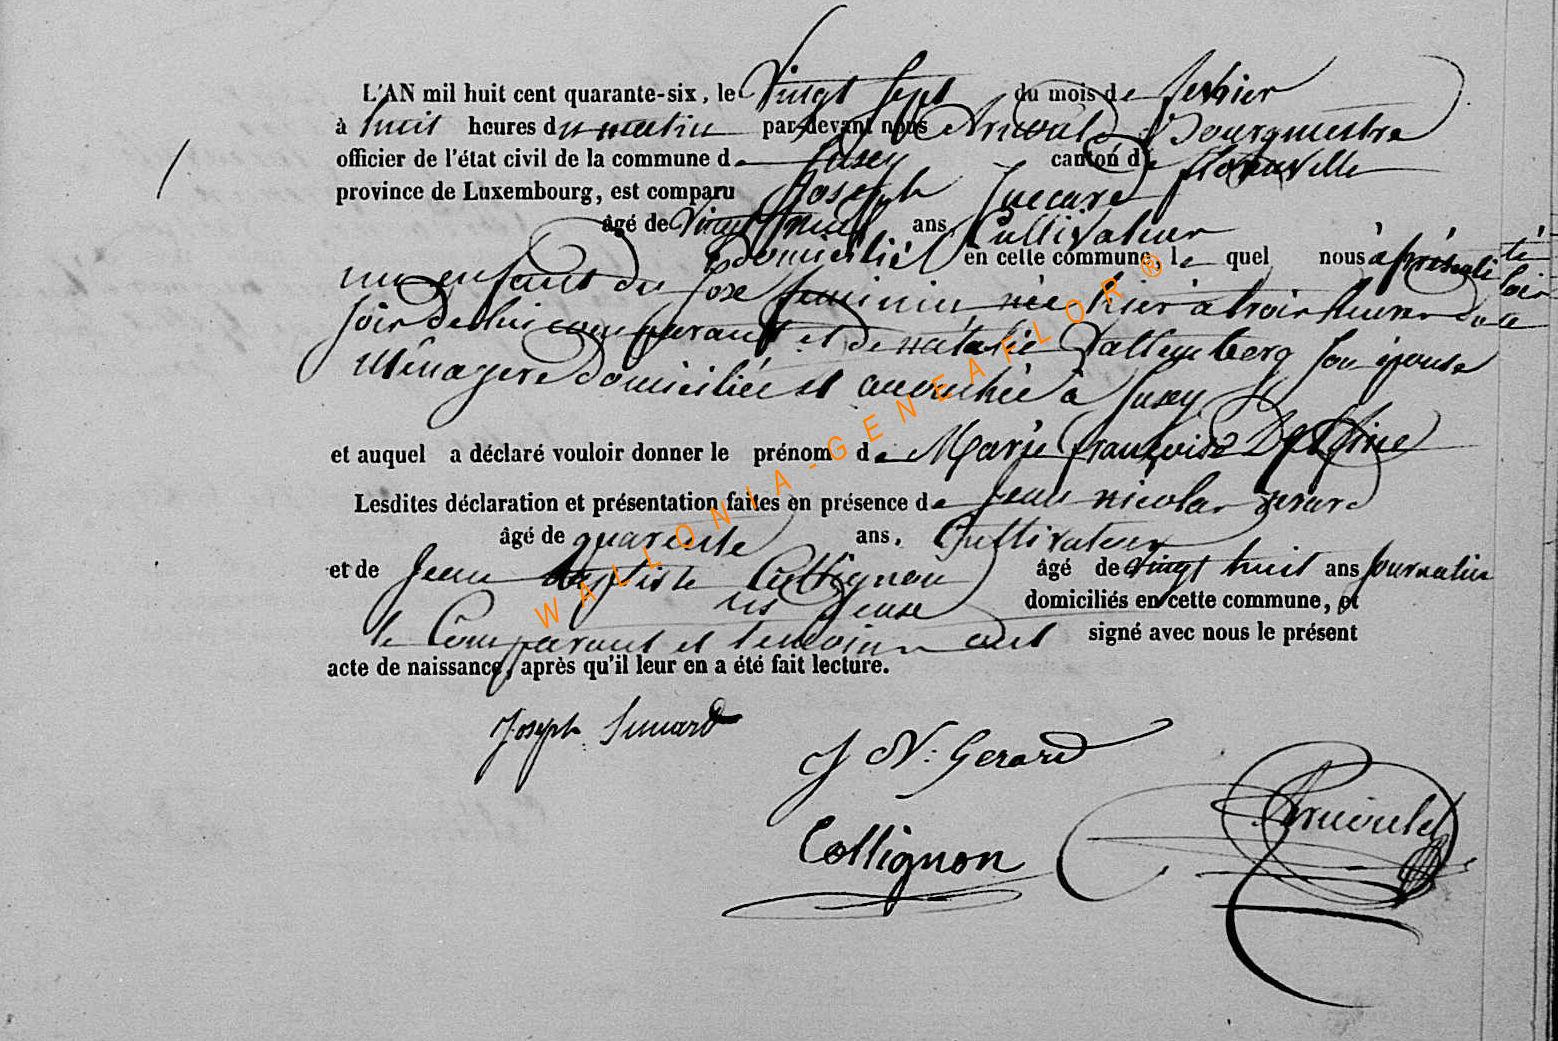 L'AN mil huit cent quarante-six, le Vingt Sept du mois de fevrier
à huit heures du matin par-devant nous Arnould Bourgmestre
officier de l'état civil de la commune de canton de florenville
province de Luxembourg, est comparu Joseph
âgé de Vingt neuf ans, Cultivateur
domicilié en cette commune, le quel nous à présenté
un enfant du sexe feminin, née hier à trois heures du
soir de lui comparant et de natalie son épouse
Ménagere domiciliée et accouchée à
et auquel a déclaré vouloir donner le prénom de Marie françoise Delphine
Lesdites déclaration et présentation faites en présence de Jean nicolas gerard
âgé de quarente ans, Cultivateur
et de Jean baptiste Collignon âgé de vingt huit ans Journalier
les deux domiciliés en cette commune, et
le Comparant et temoins ont signé avec nous le présent
acte de naissance, après qu'il leur en a été fait lecture.
Joseph
J N: Gerard
Arnould
Collignon
WALLONIA-GENEAFLOR®